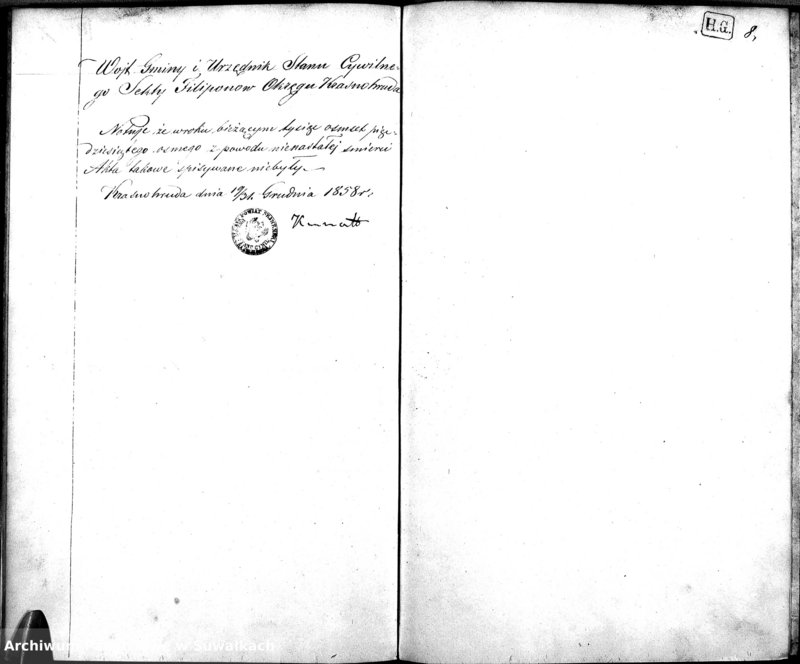 H.G. 8,
Wojt Gminy i Urzędnik Stanu Cywilne-
go Sekty Filiponow Okręgu Krasnohruda
Notuje że w roku bieżącym tysiąc osmset pięc-
dziesiątego osmego z powodu nienastałej smierci
Akta takowe spisywane niebyły.
Krasnohruda dnia 19/31. Grudnia 1858 r.
Archiwum w Suwałkach